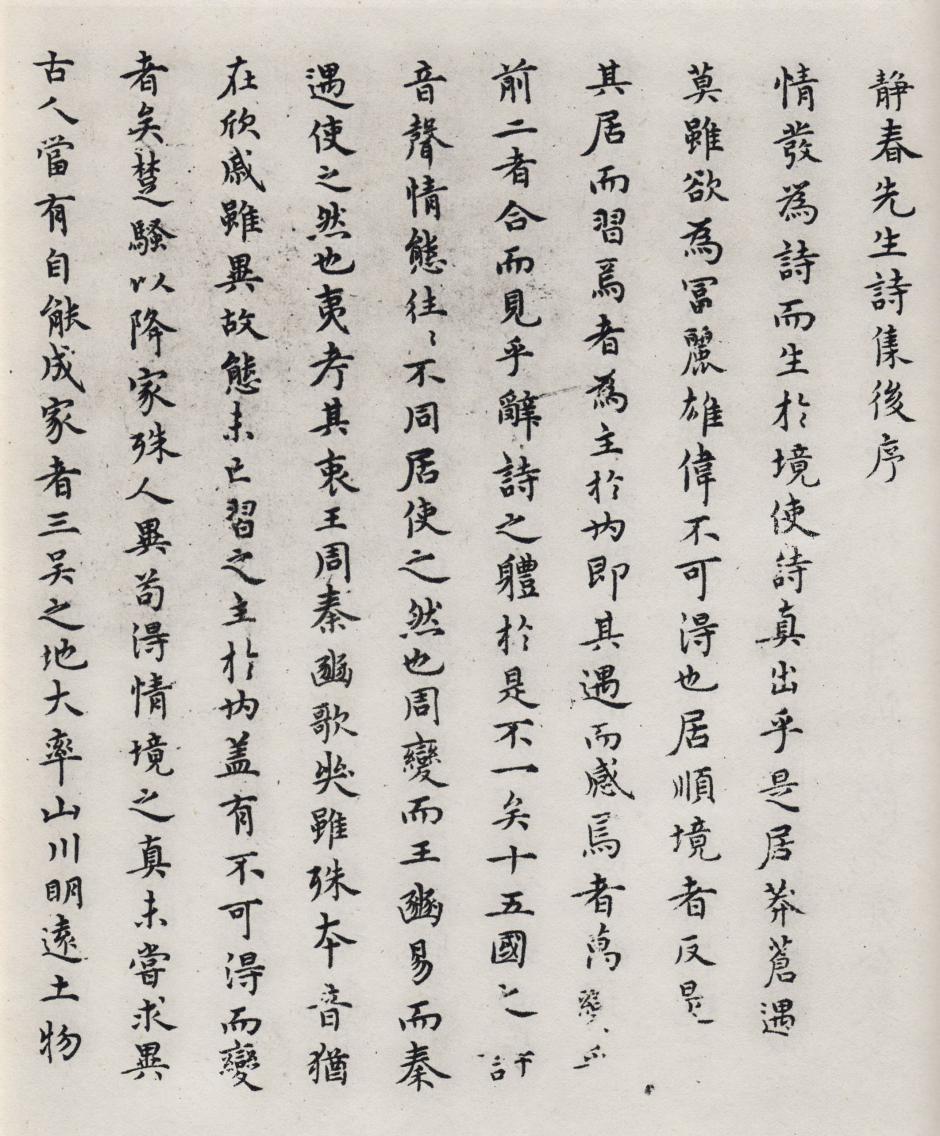 靜春先生詩集後序
情發為詩而生於境使詩真出乎是居莽蒼遇
莫雖欲為冨麗雄偉不可得也居順境者反是
其居而習焉者為主於内即其遇而感焉者萬變乎
前二者合而見乎辭詩之軆於是不一矣十五國之詩
音聲情態往〻不同居使之然也周變而王豳易而秦
遇使之然也夷考其衷王周秦豳歌哭雖殊本音猶
在欣戚雖異故態未亡習之主於内盖有不可得而變
者矣楚騷以降家殊人異苟得情境之真未嘗求異
古人當有自能成家者三吴之地大率山川明遠土物